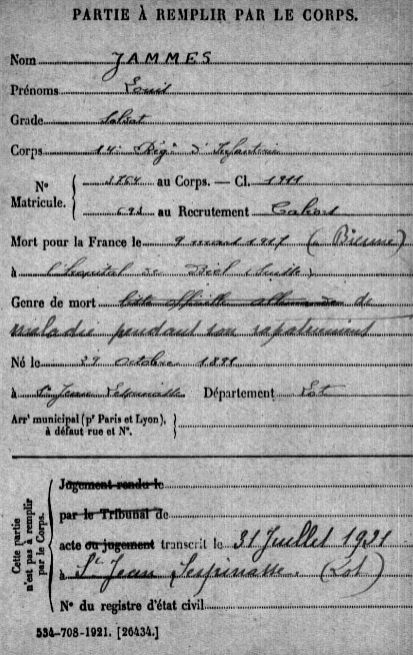 PARTIE À REMPLIR PAR LE CORPS.
Nom JAMMES
Prénoms Louis
Grade Soldat
Corps 14e Régt d'Infanterie
N° Matricule. { 3764 au Corps. — Cl. 1911
691 au Recrutement Cahors
Mort pour la France le 9 mars 1917 (à Bienne)
à l'hôpital de Biel (Suisse)
Genre de mort liste officielle allemande de
maladie pendant son rapatriement
Né le 29 Octobre 1891
à St Jean Lespinasse Département Lot
Arrt municipal (pr Paris et Lyon), }
à défaut rue et N°.
Cette partie n'est pas à remplir par le Corps.
Jugement rendu le
par le Tribunal de
acte ou jugement transcrit le 31 Juillet 1921
à St Jean Lespinasse. (Lot)
N° du registre d'état civil
534-708-1921. [26434.]